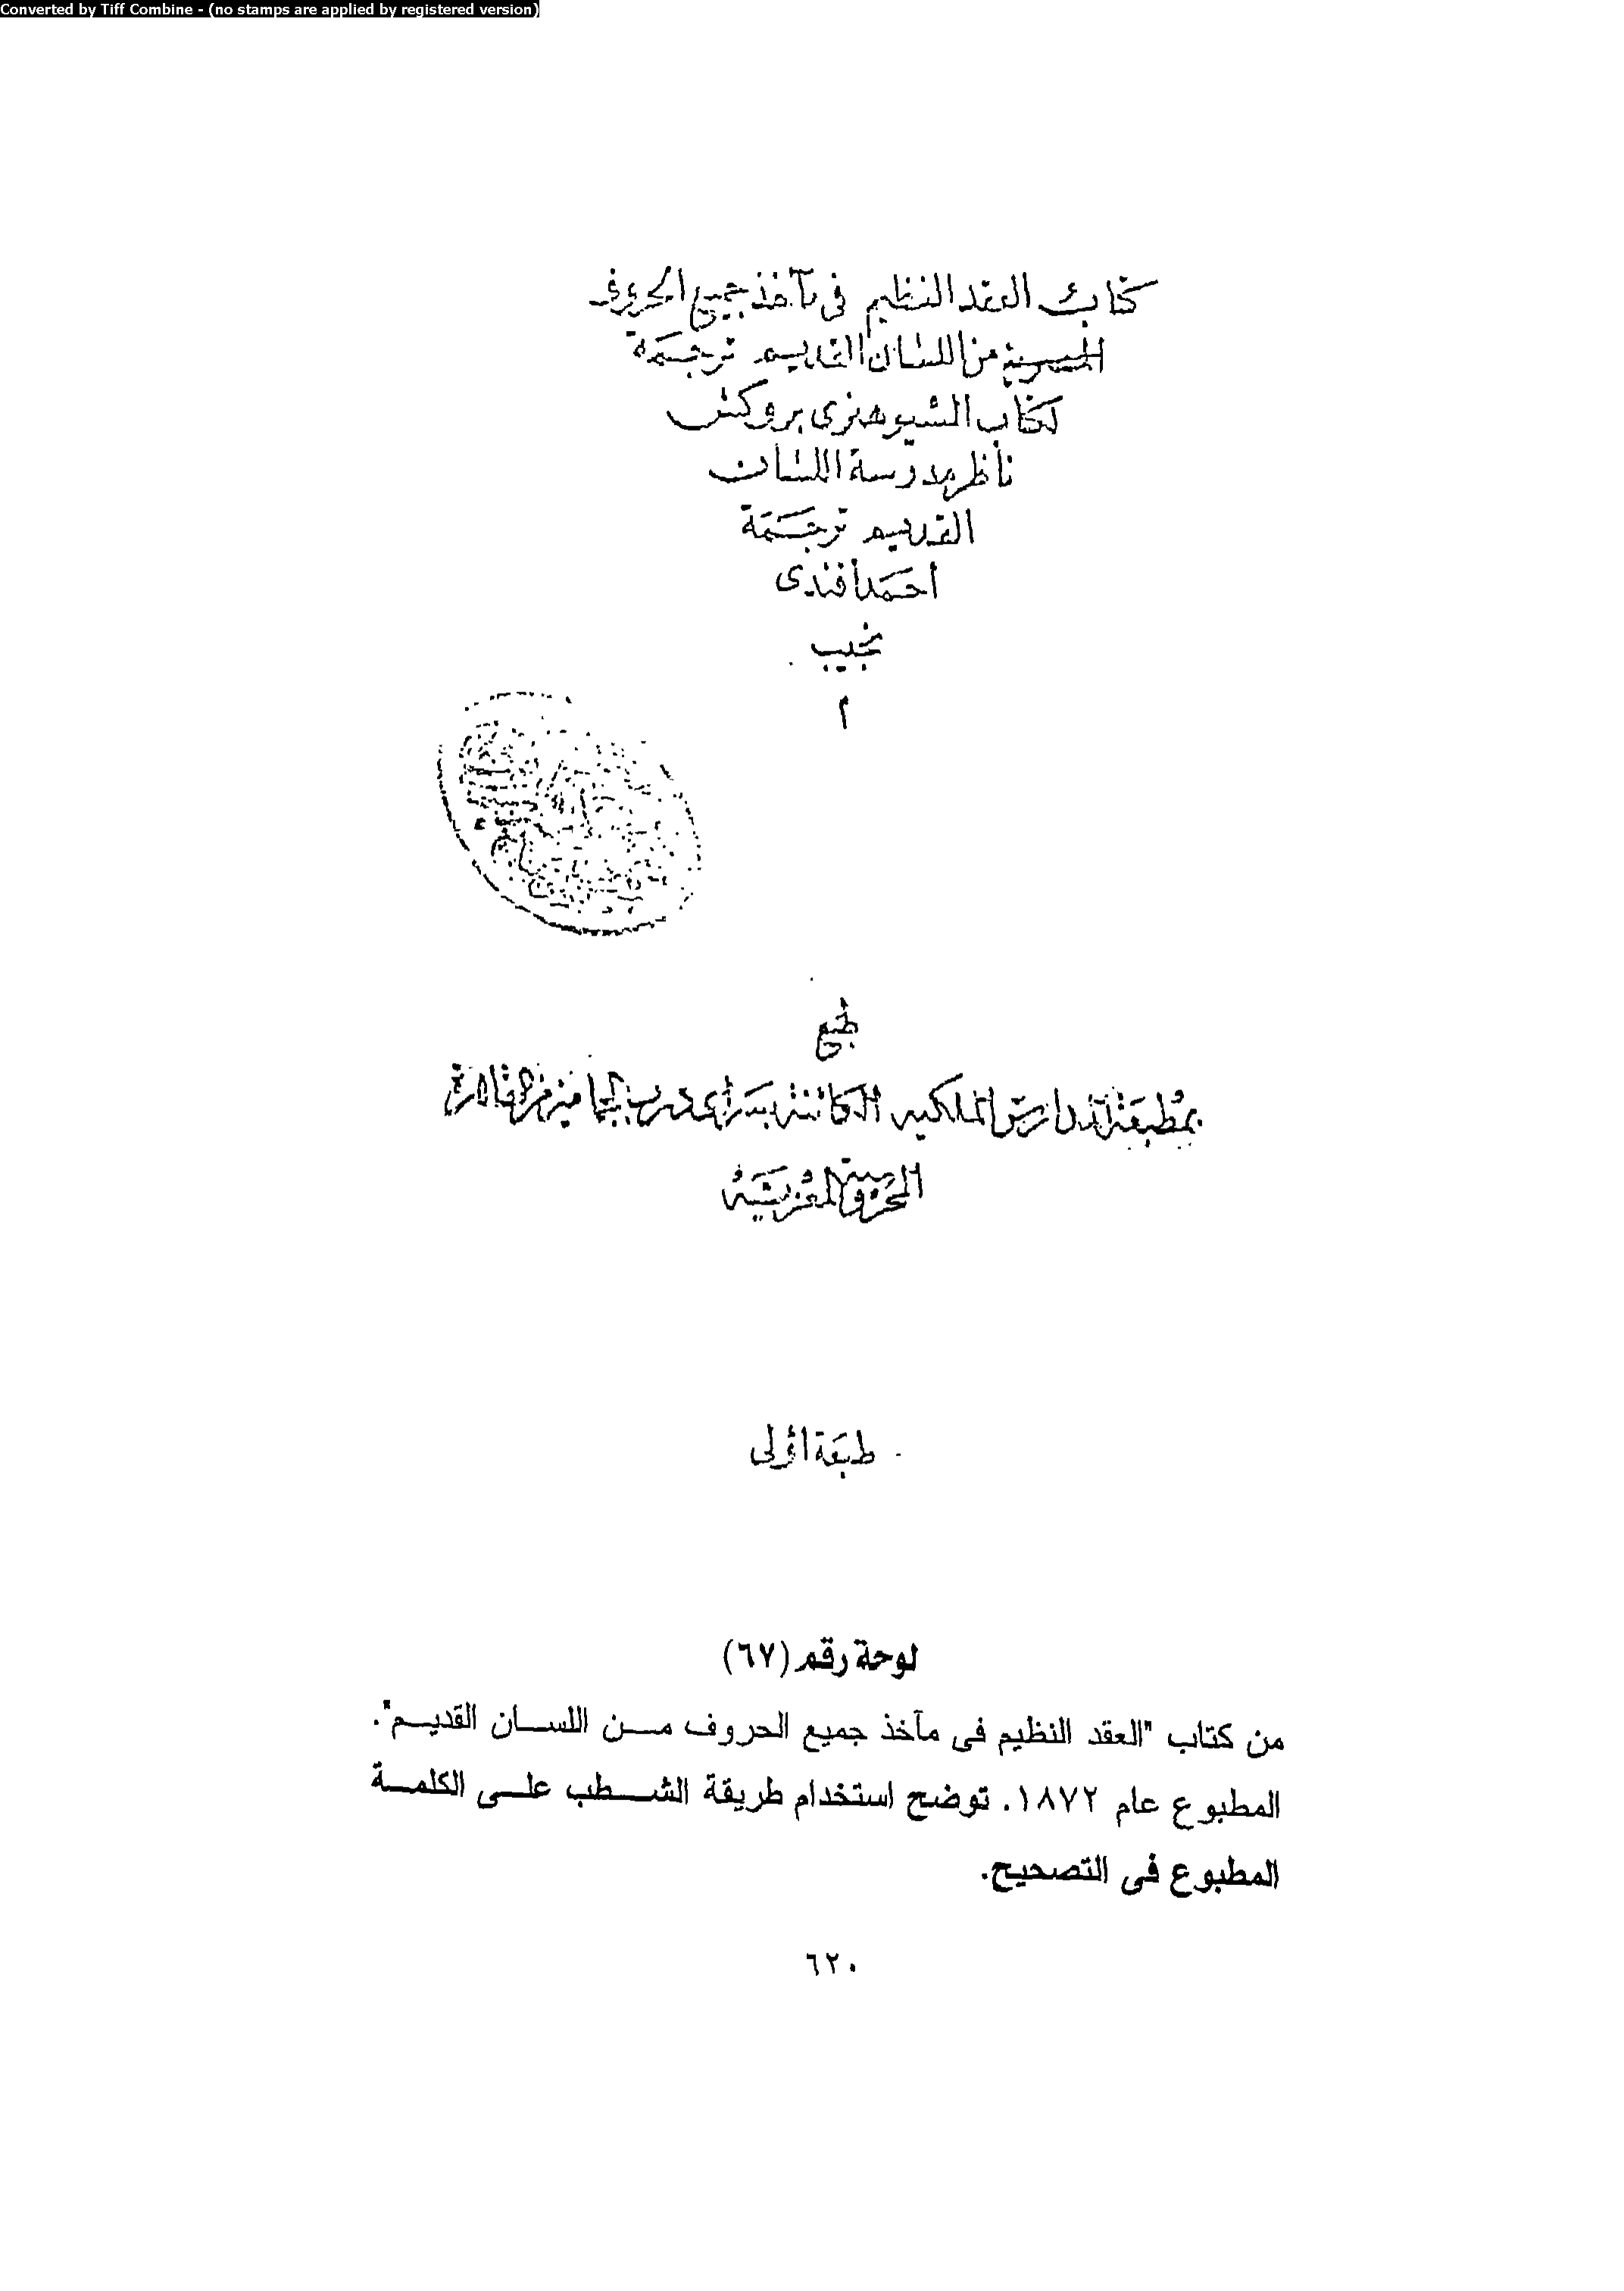 Converted by Tiff Combine - (no stamps are applied by registered version)
كتاب العقد النظيم فى مآخذ جميع الحروف
المصرية من اللسان القديم ترجمة
لكتاب المسيو هنرى بروكش
ناظر مدرسة اللسان
القديم ترجمة
احمد افندى
نجيب
م
طبع
بمطبعة المدارس الملكيه الكائنة بسراى درب الجماميز من القاهرة
المحروسة المعزية
طبعة أولى
لوحة رقم (٦٧)
من كتاب "العقد النظيم فى مآخذ جميع الحروف مـن اللسـان القديـم".
المطبوع عام ١٨٧٢. توضح استخدام طريقة الشـطب علـى الكلمـة
المطبوع فى التصحيح.
٦٢٠